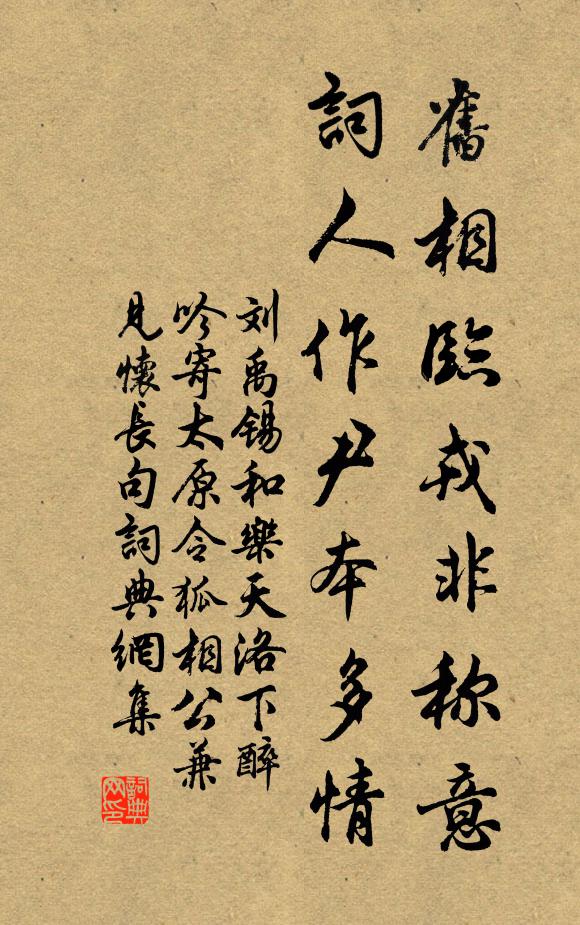 舊相臨戎非称意
詞人作尹本多情
刘禹锡和樂天洛下醉
吟寄太原令狐相公兼
見懷長句詞典網集
詞典
网印